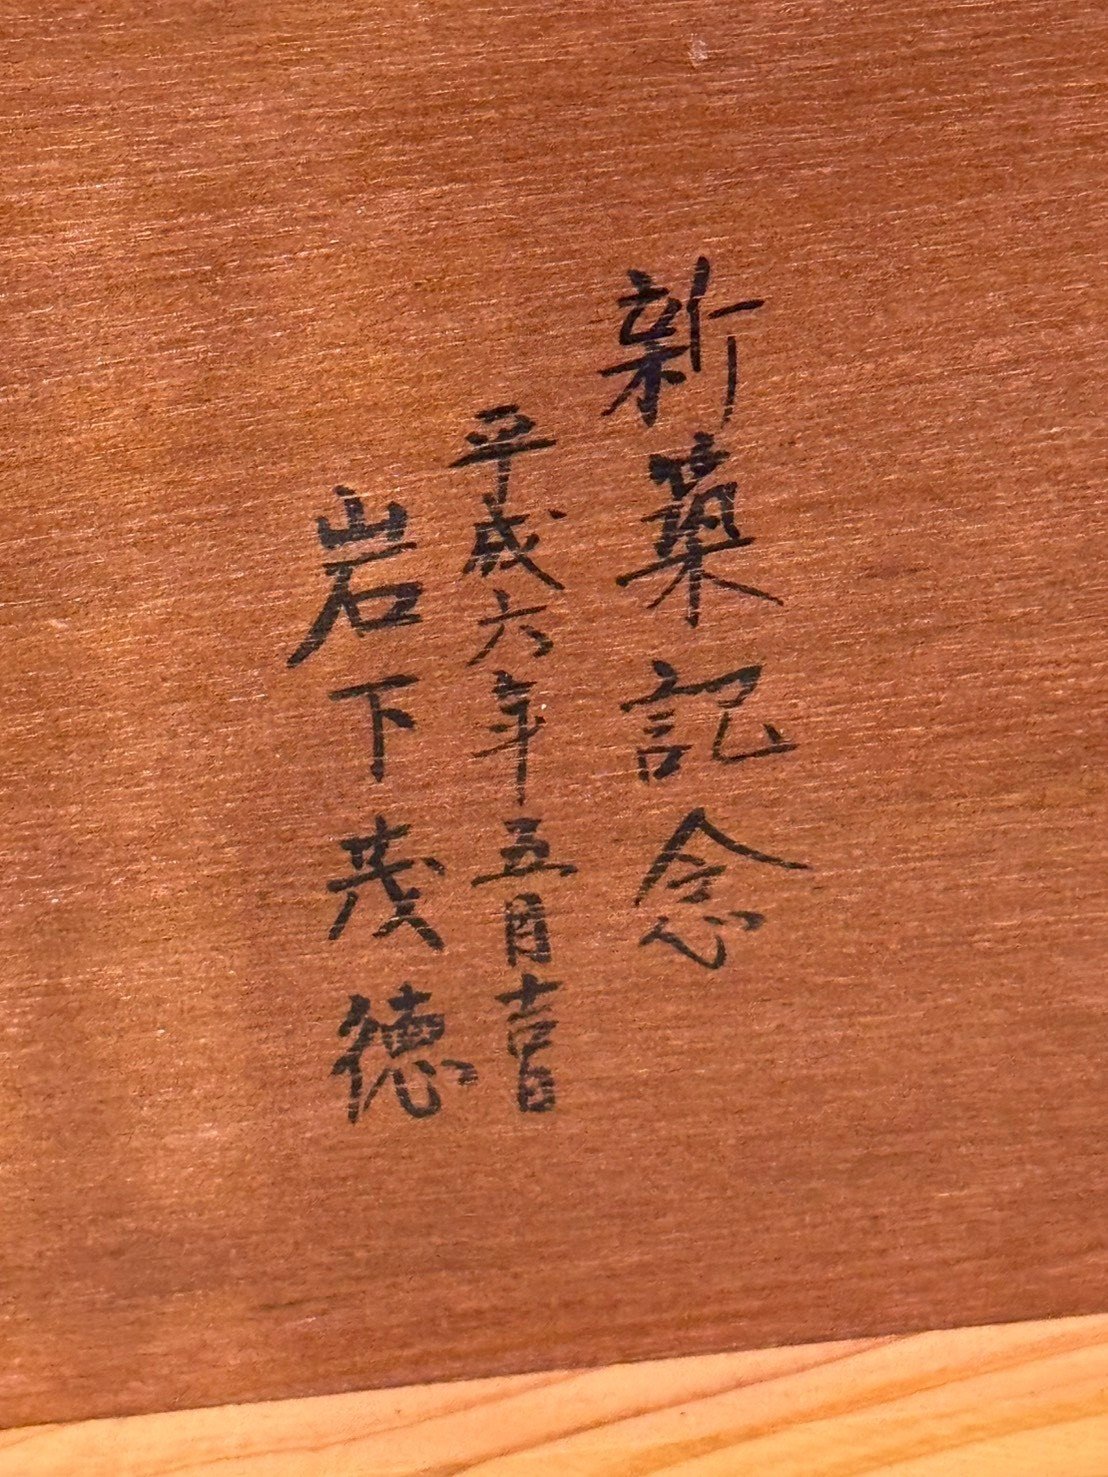 新築記念
平成六年五月吉日
岩下茂徳